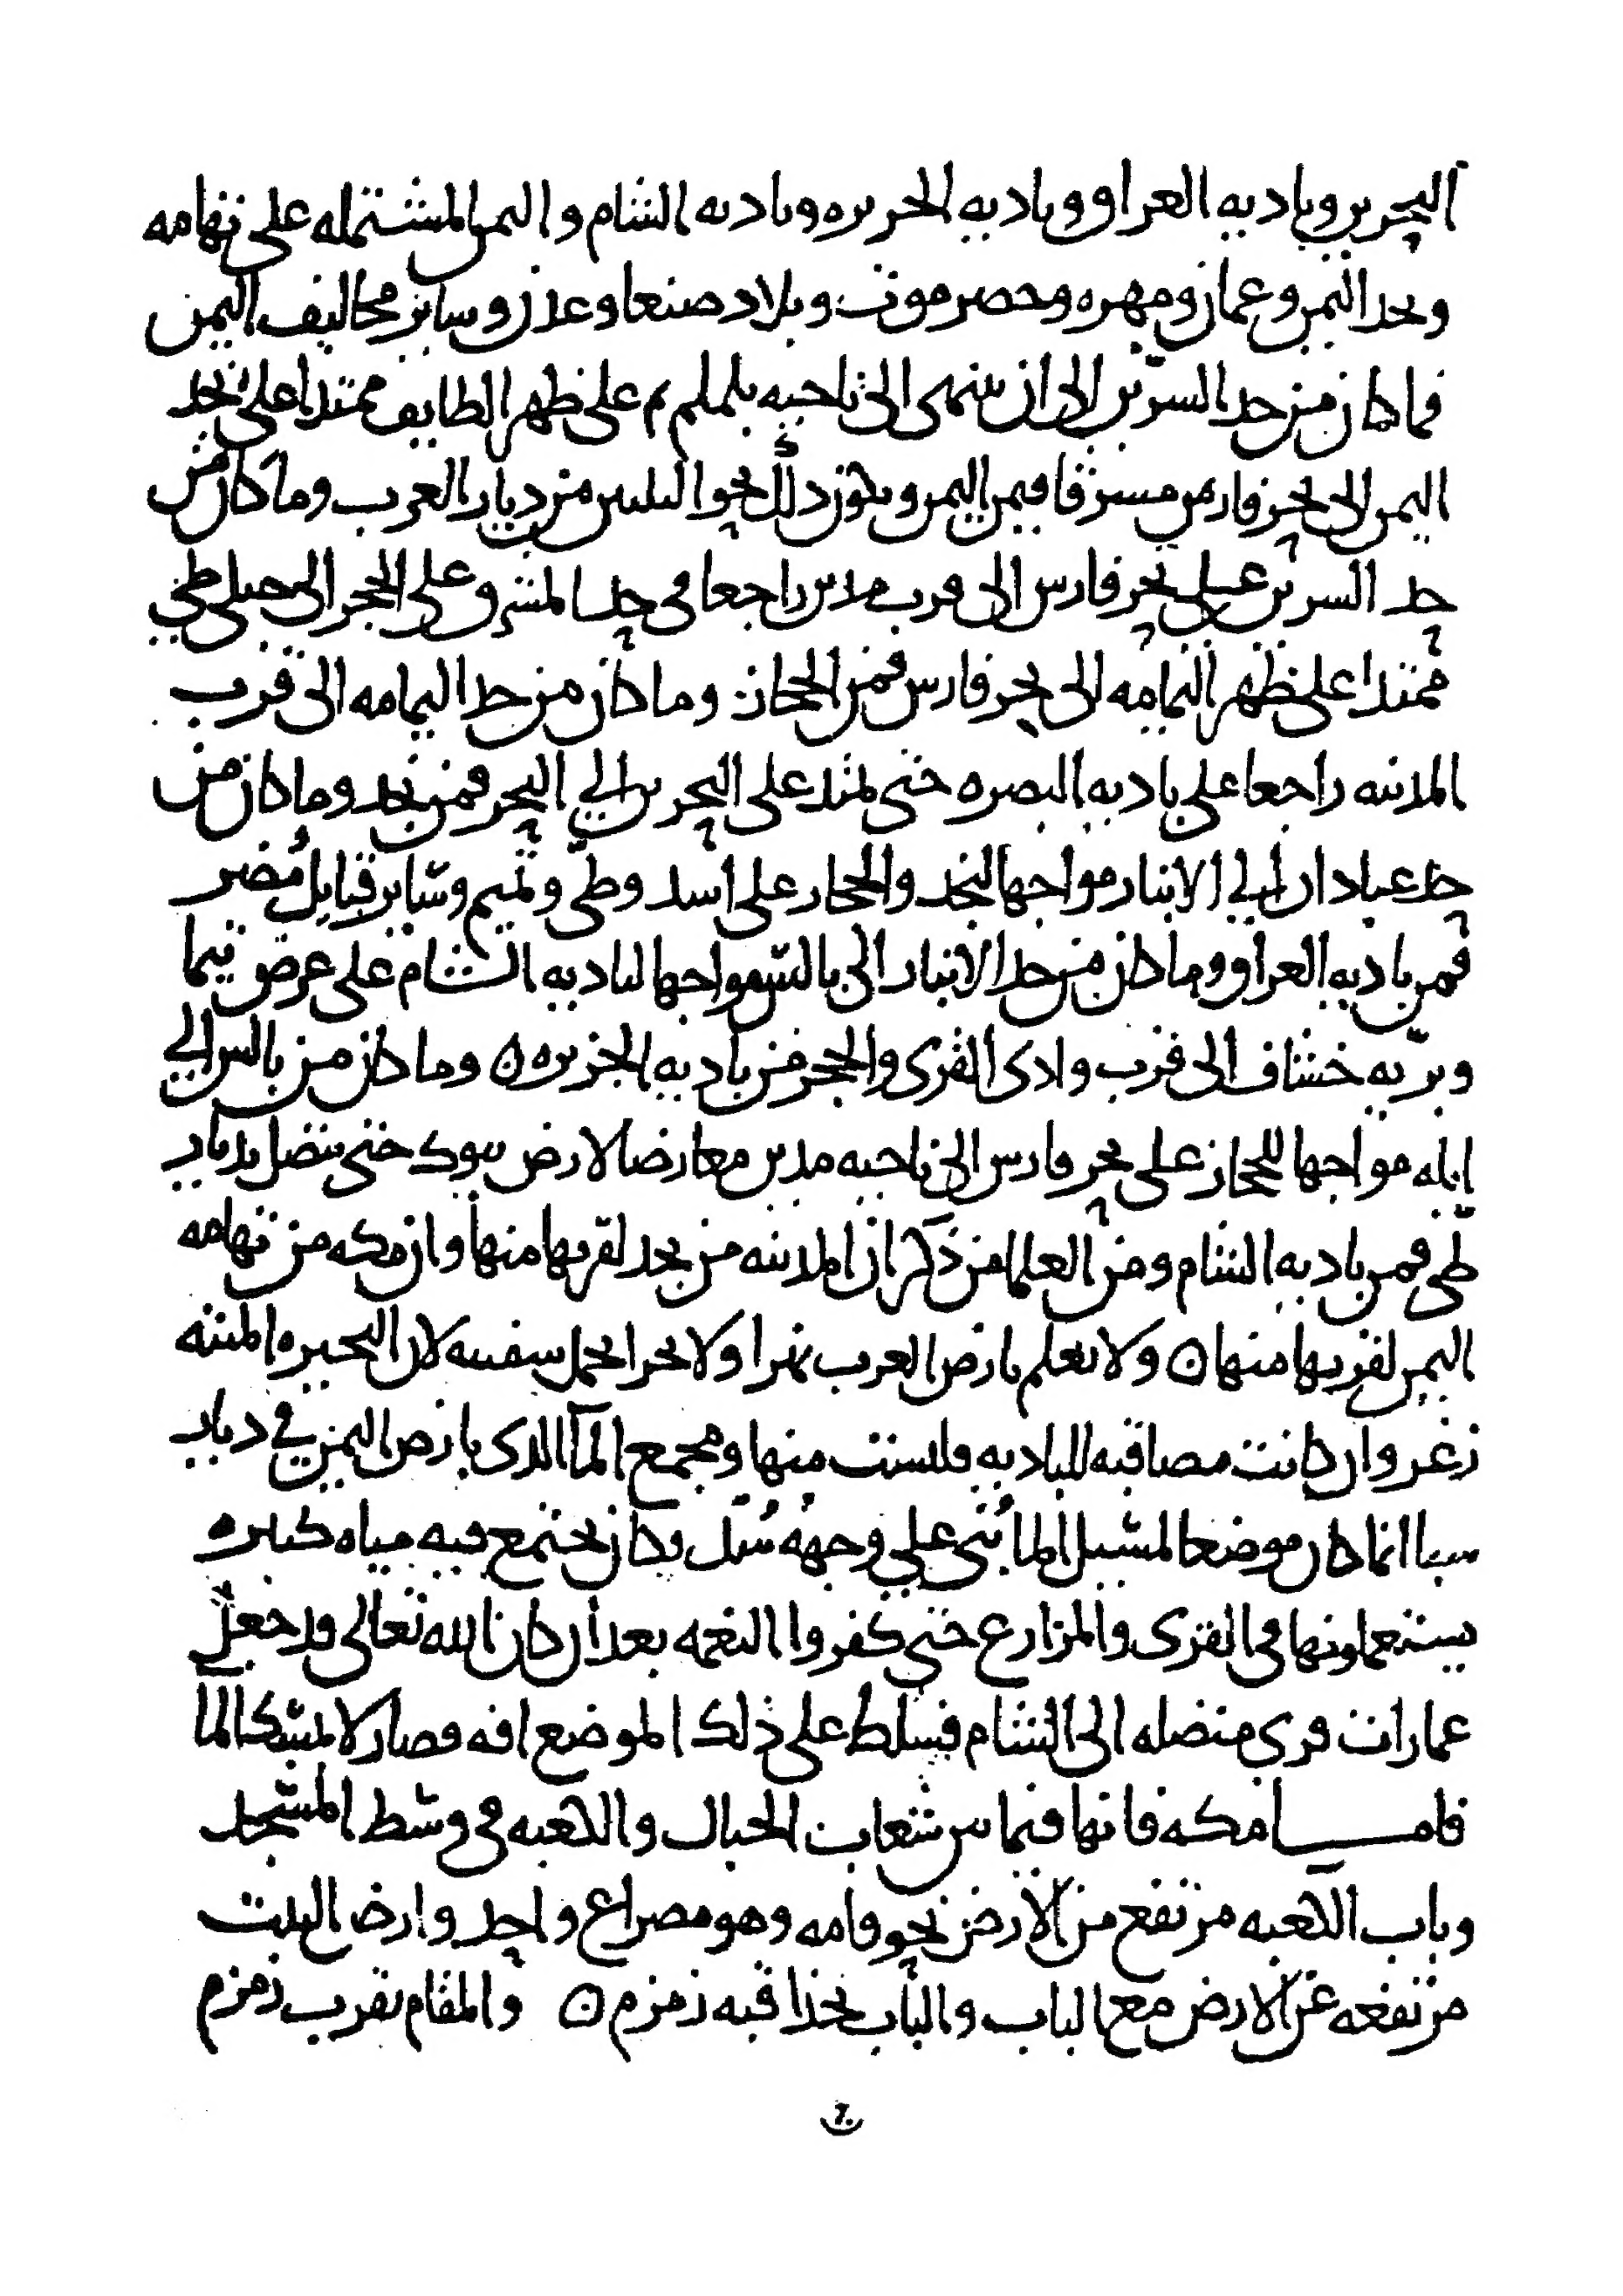 البحرين وبادية العراق وبادية الجزيره وبادية الشام واليمن المشتمله على تهامه
ونجد اليمن وعمان ومهره وحضرموت وبلاد صنعا وعدن وساير مخاليف اليمن
فما كان من حد السرين الى ان ينتهى الى ناحيه يلملم ثم على ظهر الطايف ممتدا على نجد
اليمن الى بحر فارس مشرقا فمن اليمن ويكون ذلك نحو الثلثين من ديار العرب وما كان من
حد السرين على بحر فارس الى قرب مدين راجعا فى حد المشرق على الحجر الى جبلى طي
ممتدا على ظهر اليمامه الى بحر فارس فمن الحجاز وما كان من حد اليمامه الى قرب
المدينه راجعا على باديه البصره حتى يمتد على البحرين الي البحر فمن نجد وما كان من
حد عبادان الي الانبار مواجها لنجد والحجاز على اسد وطي وتميم وساير قبايل مُضر
فمن باديه العراق وما كان من حد الانبار الى بالس مواجها لباديه الشام على عرض تيما
وبريه خساف الى قرب وادى القرى والحجر فمن باديه الجزيره ن وما كان من بالس الي
ايله مواجها للحجاز على بحر فارس الى ناحيه مدين معارضا لارض تبوك حتى يتصل بديار
طى فمن باديه الشام ومن العلما من ذكر ان المدينه من نجد لقربها منها وان مكه من تهامه
اليمن لقربها منها ن ولا نعلم بارض العرب نهرا ولا بحرا يحمل سفينه لان البحيره المنتنه
زغر وان كانت مصاقبه للباديه فليست منها ومجمع المآ الذى بارض اليمن في ديار
سبا انما كان موضعا لمسيل الما بُنى على وجهه سُد فكان يجتمع فيه مياه كثيره
يستعملونها فى القرى والمزارع حتى كفروا النعمه بعد ان كان الله تعالى قد جعل
عمارات قرى متصله الى الشام فسلط على ذلك الموضع افه فصار لا يمسك الما
فامـــا مكه فانها فيما بين شعاب الجبال والكعبه فى وسط المسجد
وباب الكعبه مرتفع من الارض نحو قامه وهو مصراع واحد وارض البيت
مرتفعه عن الارض مع الباب والباب بحذا قبه زمزم ن والمقام بقرب زمزم